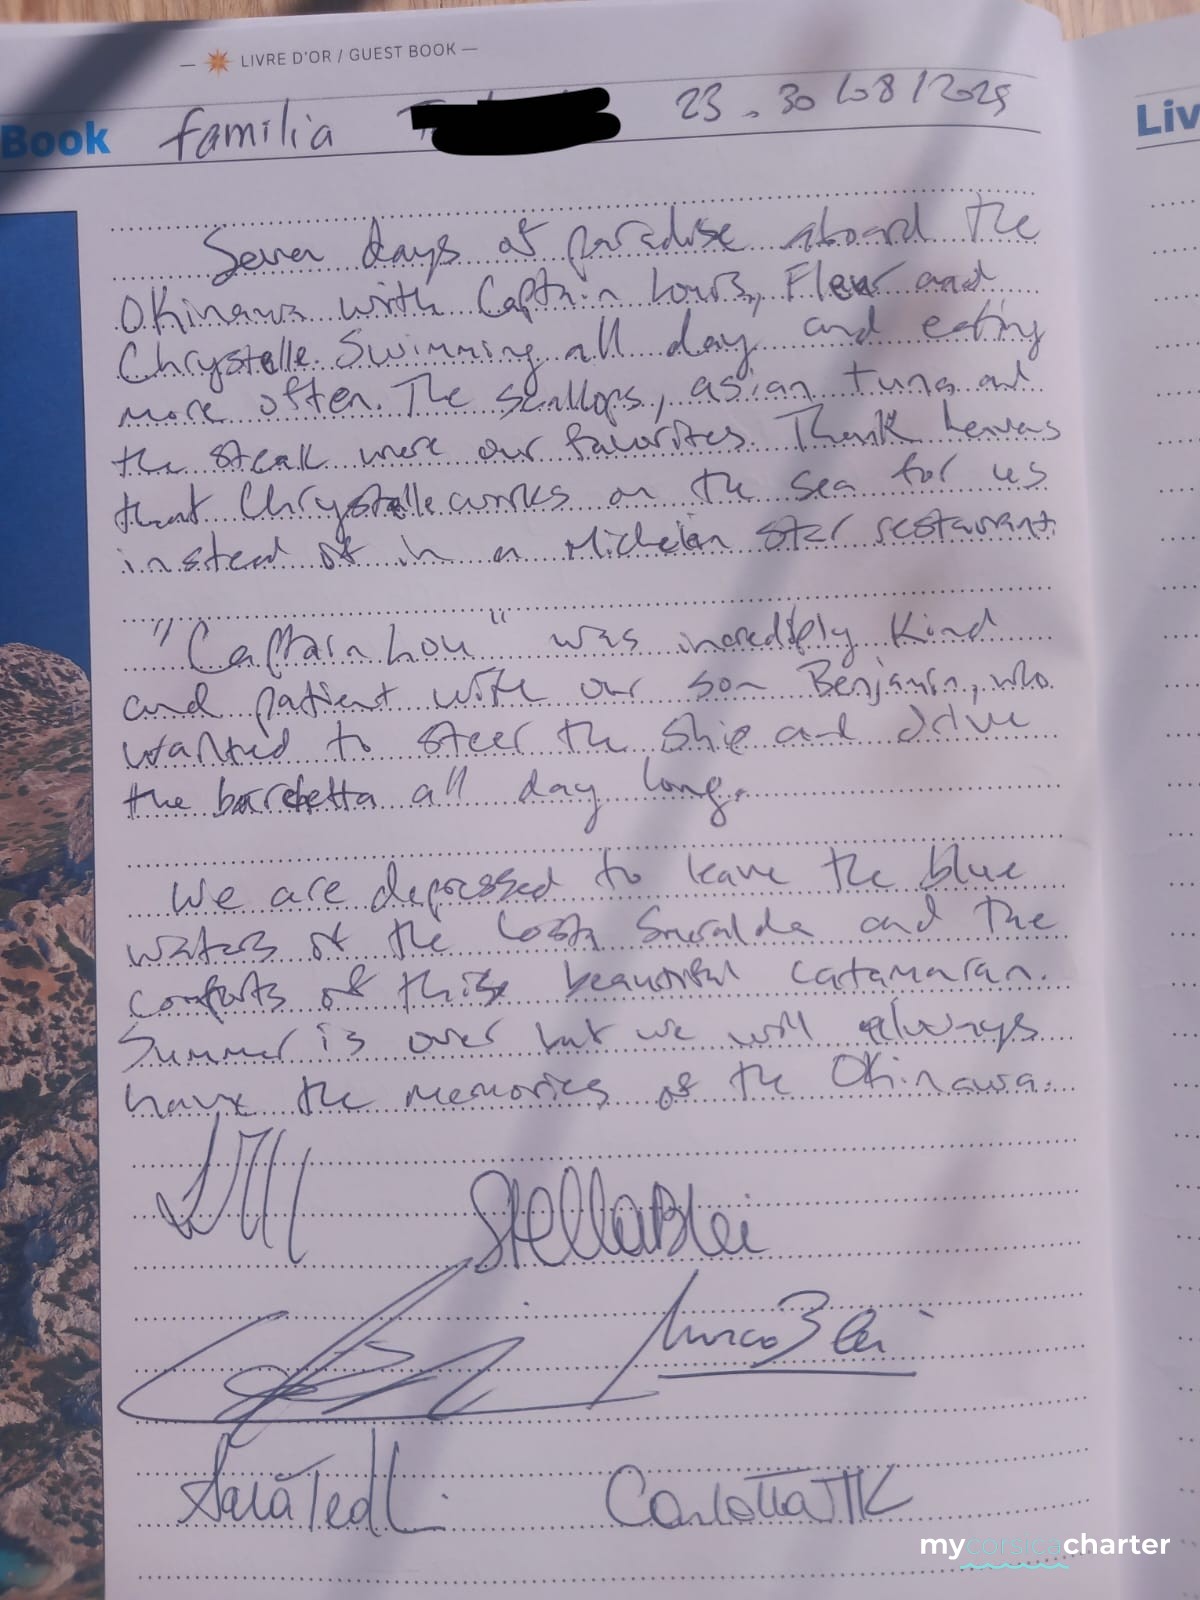 LIVRE D'OR / GUEST BOOK
Book
familia 23.30/08/2025
Liv
Seven days of paradise aboard the
Okinawa with Captain Louis, Fleur and
Chrystelle. Swimming all day and eating
more often. The scallops, asian tuna and
the steak were our favorites. Thank heavens
that Chrystelle works on the sea for us
instead of in a Michelin star restaurant.
"Captain Lou" was incredibly kind
and patient with our son Benjamin, who
wanted to steer the ship and drive
the barchetta all day long.
We are depressed to leave the blue
waters of the Costa Smeralda and the
comforts of this beautiful catamaran.
Summer is over but we will always
have the memories of the Okinawa.
Stella Blei
Marco Blei
Sara Ted
Carlotta
mycorsicacharter